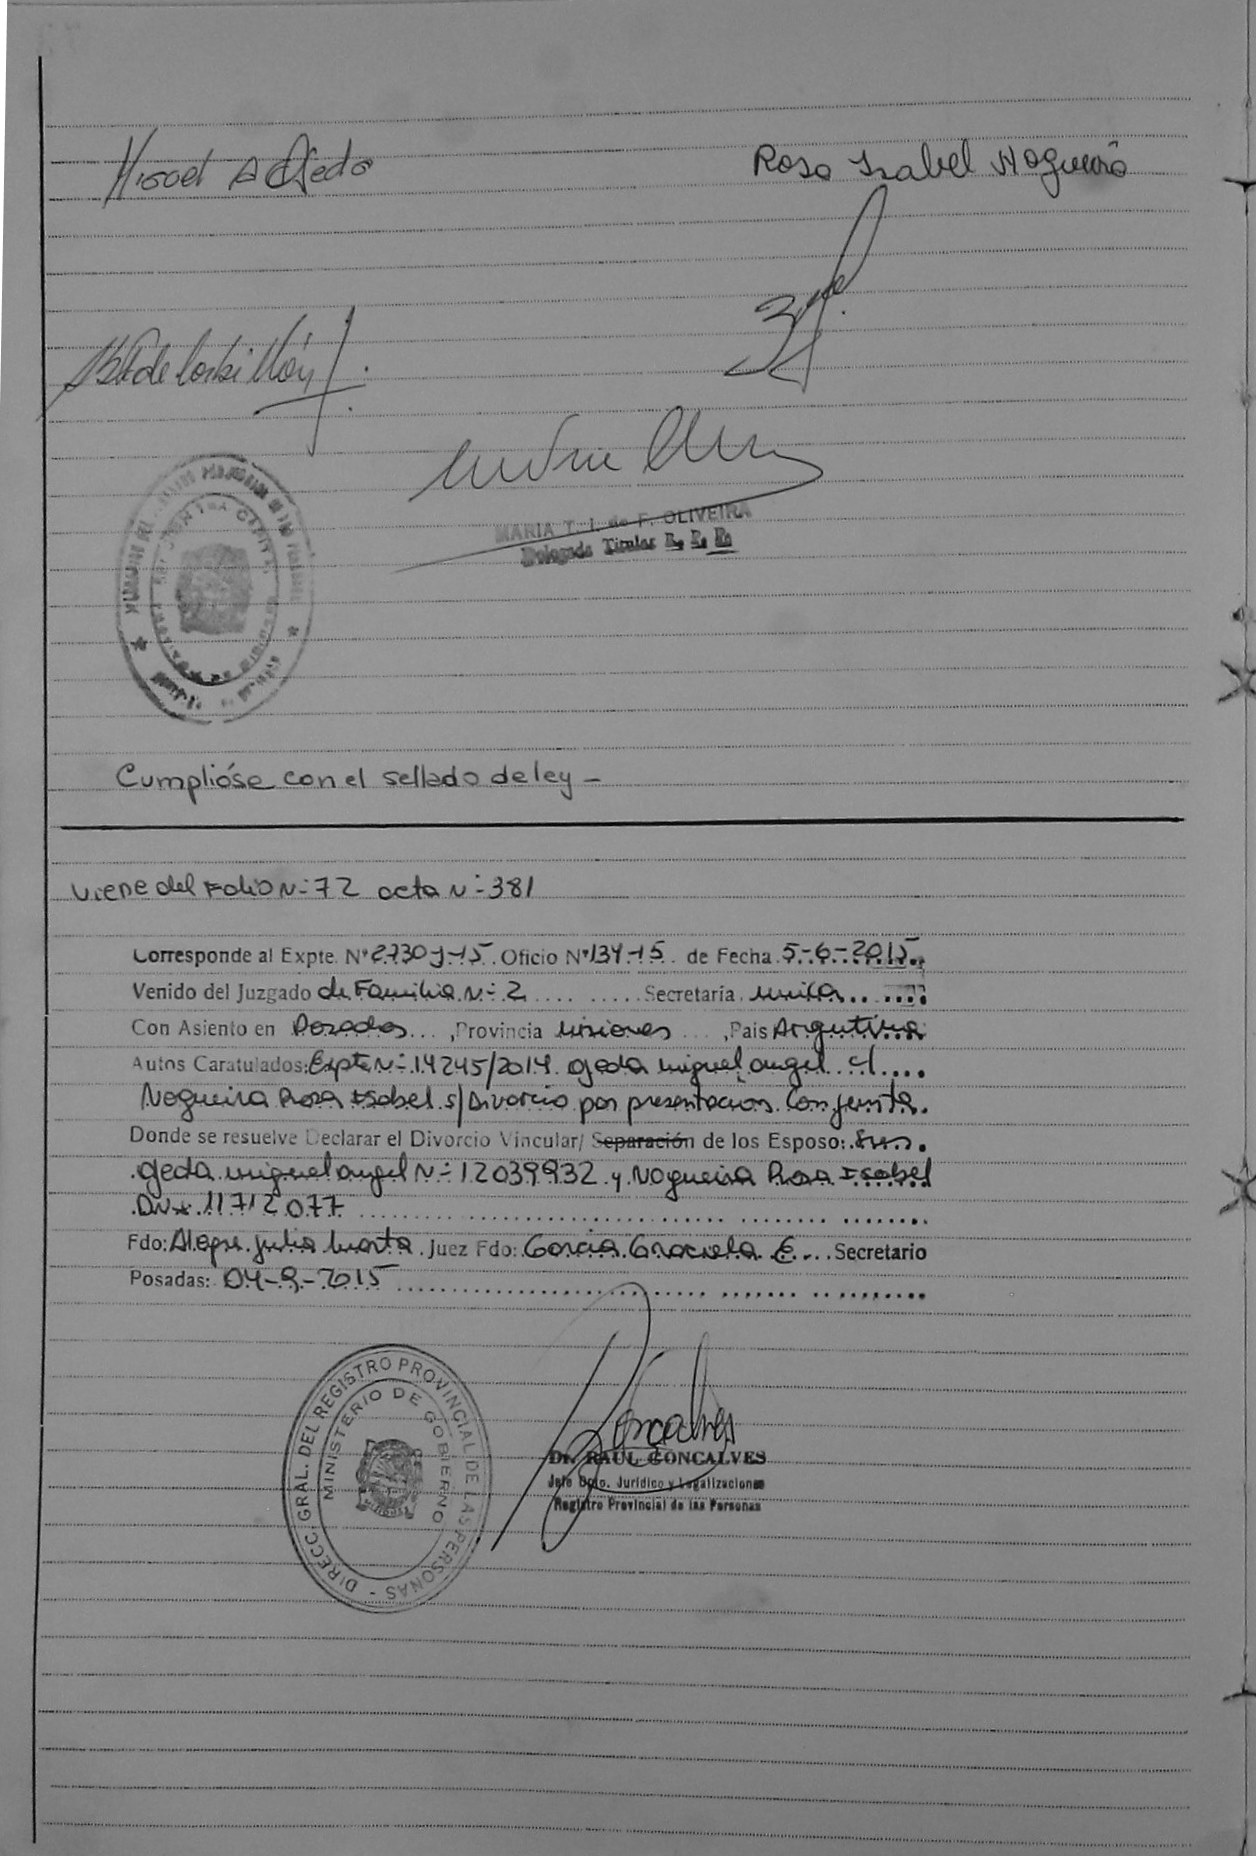 Miguel A Ojeda
Rosa Isabel Nogueira
MARIA T. I. de F. OLIVEIRA
Delegada Titular R. P. P.
Cumplióse con el sellado de ley -
Viene del Folio N:-72 acta N:-381
Corresponde al Expte. Nº 2730-J-15. Oficio Nº 134-15 de Fecha 5-6-2015
Venido del Juzgado de Familia N:-2 Secretaría unica
Con Asiento en Posadas, Provincia Misiones, Pais Argentina
Autos Caratulados: Expte N:- 14245/2014 Ojeda Miguel Angel c/
Nogueira Rosa Isabel s/ Divorcio por presentacion Conjunta.
Donde se resuelve Declarar el Divorcio Vincular/ Separación de los Esposo:
Ojeda Miguel angel N:- 12039932 y Nogueira Rosa Isabel
DN 11712077
Fdo: Alegre Julia Marta Juez Fdo: Garcia Graciela E. Secretario
Posadas: 04-9-2015
DIRECC. GRAL. DEL REGISTRO PROVINCIAL DE LAS PERSONAS -
MINISTERIO DE GOBIERNO
Goncalves
Dr. RAUL GONCALVES
Jefe Dpto. Jurídico y Legalizaciones
Registro Provincial de las Personas